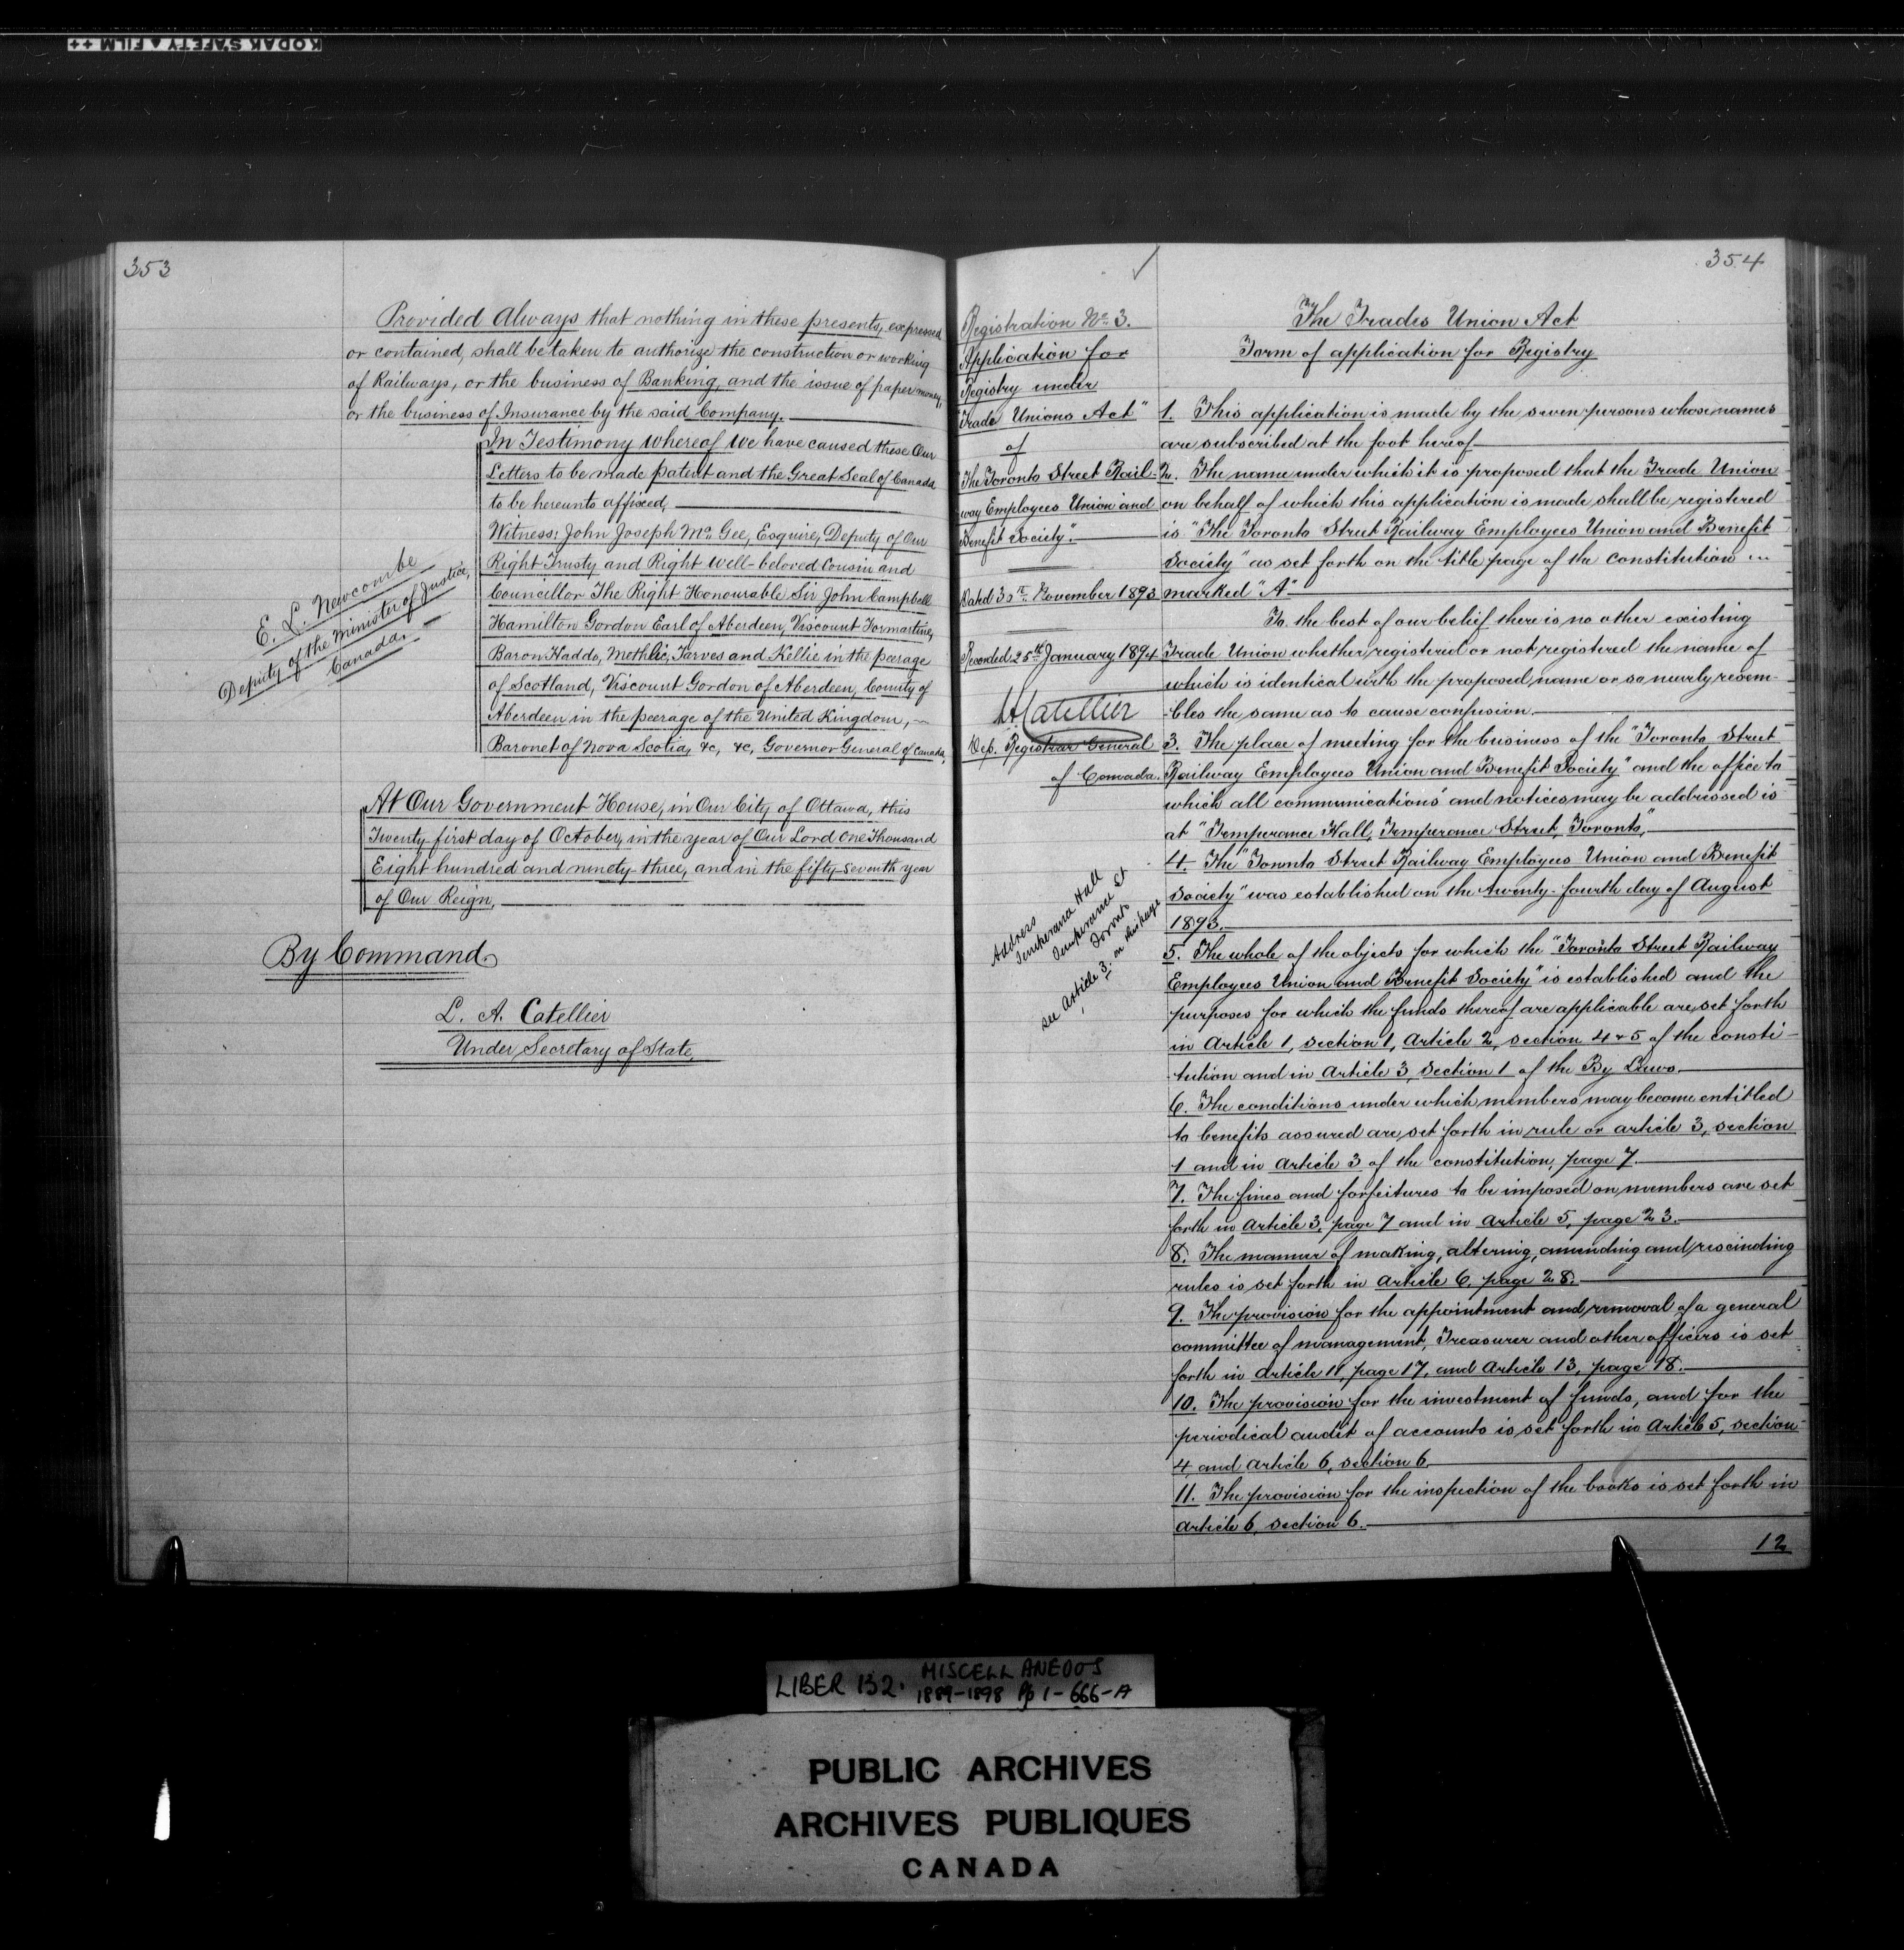 KODAK SAFETY ▲ FILM ++
353
Provided Always that nothing in these presents, expressed
or contained, shall be taken to authorize the construction or working
of Railways, or the business of Banking, and the issue of paper money,
or the business of Insurance by the said Company.
In Testimony whereof We have caused these Our
Letters to be made patent and the Great Seal of Canada
to be hereunto affixed,
Witness: John Joseph Mc Gee, Esquire, Deputy of Our
Right Trusty and Right well-beloved Cousin and
Councillor The Right Honourable Sir John Campbell
Hamilton Gordon Earl of Aberdeen, Viscount Formartine,
Baron Haddo, Methlic, Tarves and Kellie in the peerage
of Scotland, Viscount Gordon of Aberdeen, County of
Aberdeen in the peerage of the United Kingdom,
Baronet of Nova Scotia, &c, &c, Governor General of Canada,
E. L. Newcombe
Deputy of the Minister of Justice,
Canada.
At Our Government House, in Our City of Ottawa, this
Twenty-first day of October, in the year of Our Lord One Thousand
Eight hundred and ninety-three, and in the fifty-seventh year
of Our Reign,
By Command
L. A. Catellier
Under Secretary of State,
354
Registration No 3.
Application for
Registry under
"Trade Unions Act"
of
"The Toronto Street Rail-
way Employees Union and
Benefit Society".
Dated 30th November 1893
Recorded 25th January 1894
LA Catellier
Dep. Registrar General
of Canada.
Address
Temperance Hall
Temperance St
Toronto
see Article 3: on this page
The Trades Union Act
Form of application for Registry
1. This application is made by the seven persons whose names
are subscribed at the foot hereof
2. The name under which it is proposed that the Trade Union
on behalf of which this application is made shall be registered
is "The Toronto Street Railway Employees Union and Benefit
Society" as set forth on the title page of the constitution
marked "A"
To the best of our belief there is no other existing
Trade Union whether registered or not registered the name of
which is identical with the proposed name or so nearly resem-
-bles the same as to cause confusion.
3. The place of meeting for the business of the "Toronto Street
Railway Employees Union and Benefit Society" and the office to
which all communications and notices may be addressed is
at "Temperance Hall, Temperance Street, Toronto,"
4. The "Toronto Street Railway Employees Union and Benefit
Society" was established on the twenty-fourth day of August
1893.
5. The whole of the objects for which the "Toronto Street Railway
Employees Union and Benefit Society" is established and the
purposes for which the funds thereof are applicable are set forth
in Article 1, section 1, Article 2, section 4 & 5 of the consti-
-tution and in Article 3, section 1 of the By Laws.
6. The conditions under which members may become entitled
to benefits assured are set forth in rule or article 3, section
1 and in article 3 of the constitution, page 7.
7. The fines and forfeitures to be imposed on members are set
forth in article 3, page 7 and in article 5, page 23.
8. The manner of making, altering, amending and rescinding
rules is set forth in article 6, page 28.
9. The provision for the appointment and removal of a general
committee of management, Treasurer and other officers is set
forth in article 11, page 17, and article 13, page 18.
10. The provision for the investment of funds, and for the
periodical audit of accounts is set forth in article 5, section
4 and article 6, section 6.
11. The provision for the inspection of the books is set forth in
article 6, section 6.
12
LIBER 132. MISCELLANEOUS
1889-1898 Pp 1-666-A
PUBLIC ARCHIVES
ARCHIVES PUBLIQUES
CANADA